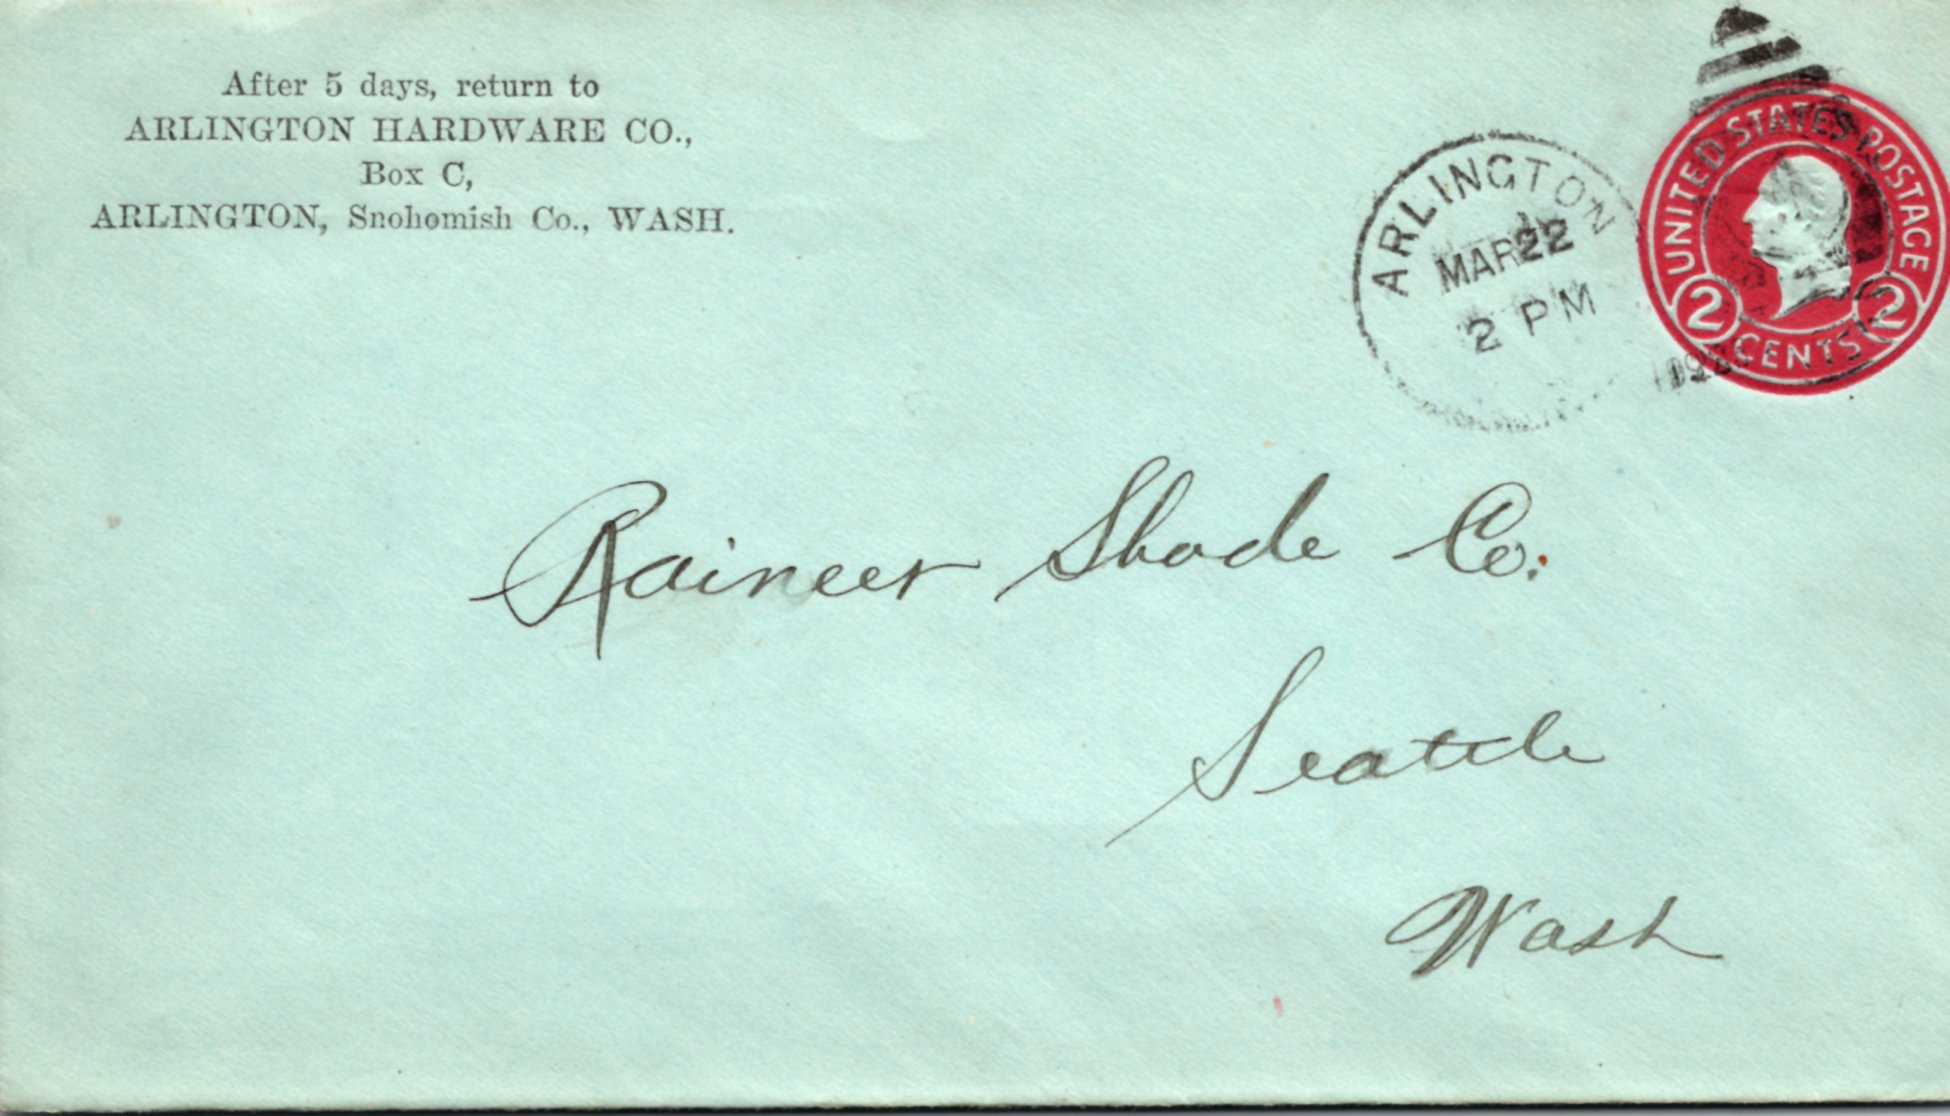 After 5 days, return to
ARLINGTON HARDWARE CO.,
Box C,
ARLINGTON, Snohomish Co., WASH.
ARLINGTON
MAR 22
2 PM
UNITED STATES POSTAGE
2 CENTS 2
Raineer Shade Co.
Seattle
Wash